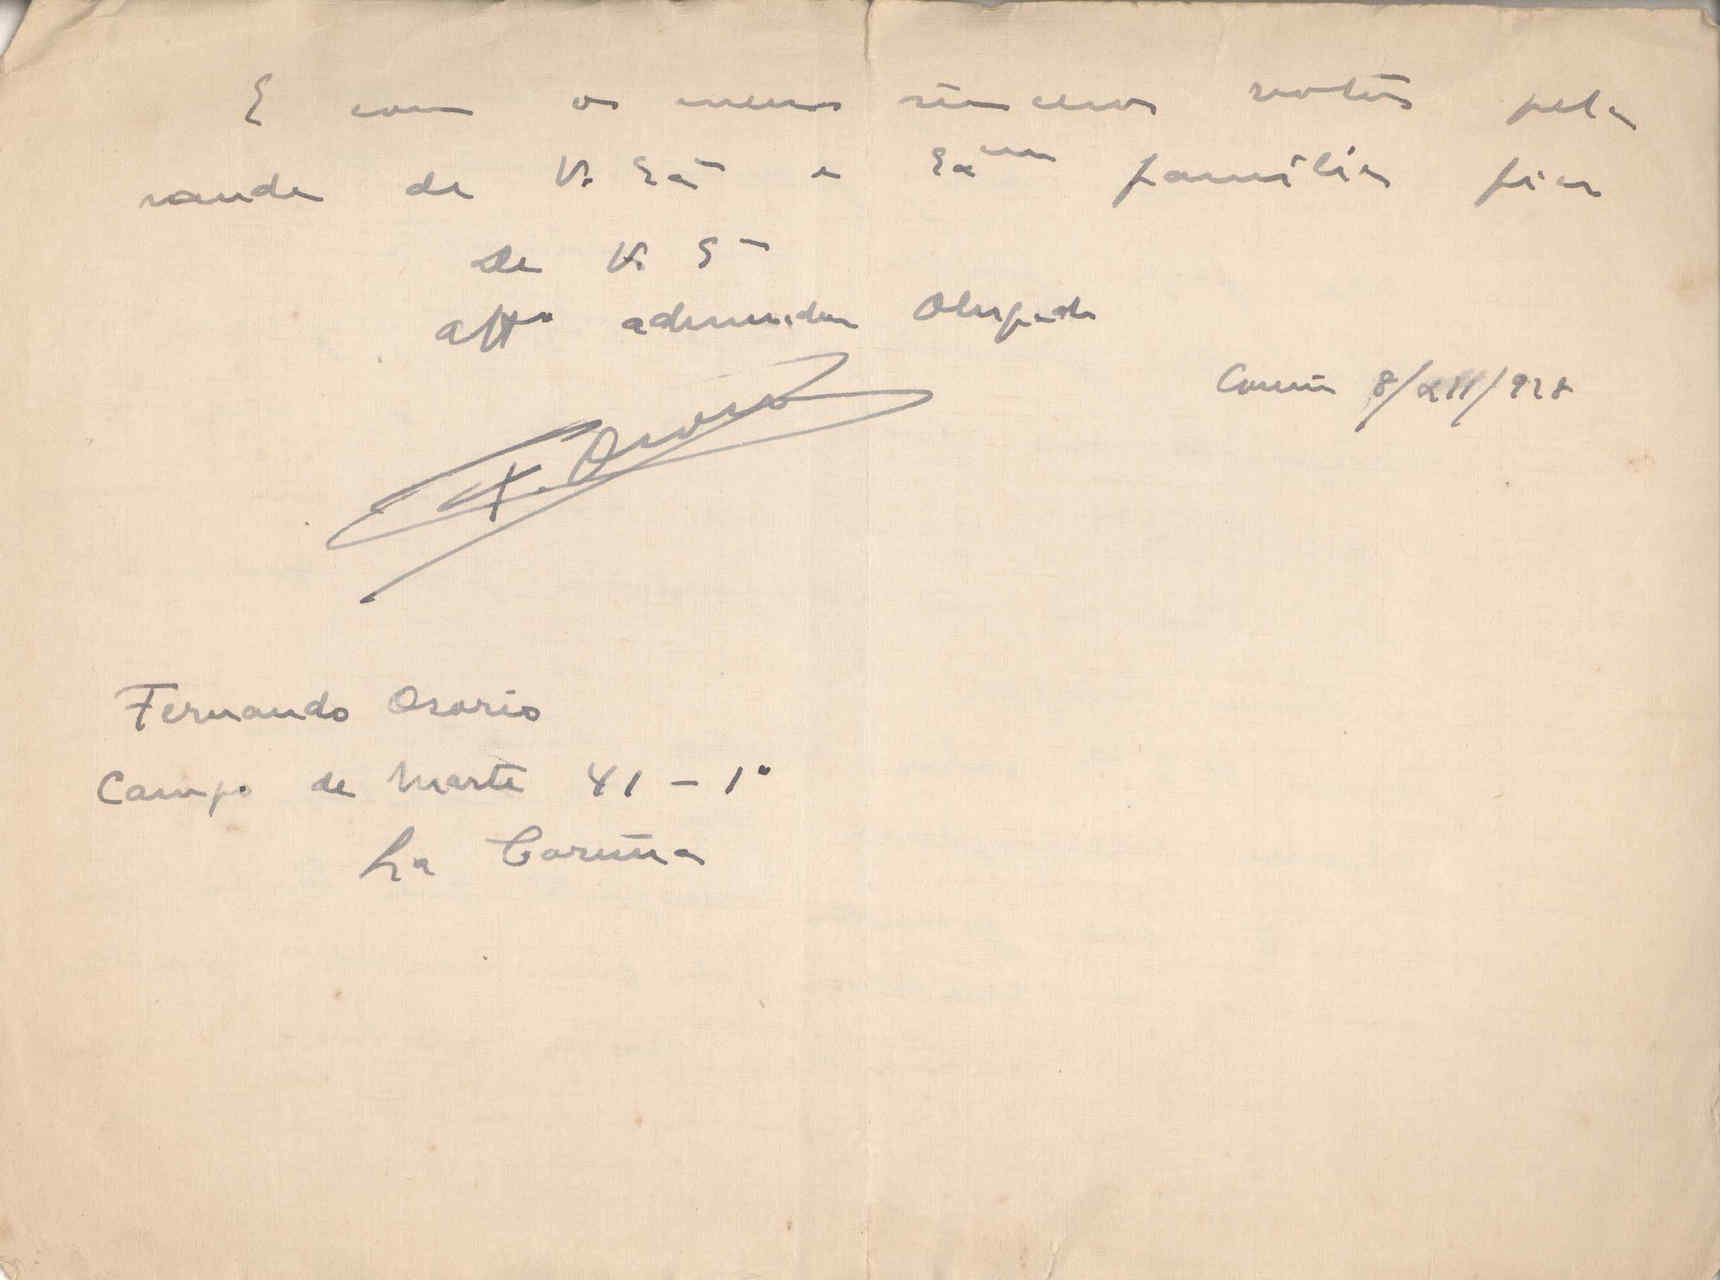 E com os meus sinceros votos pela
saude de V. Exª e Exma familia fica
De V. Eª
Attº admirador Obrigado
Coruña 8/XII/928
F. Osorio
Fernando Osorio
Campo de Marte 41 - 1º
La Coruña